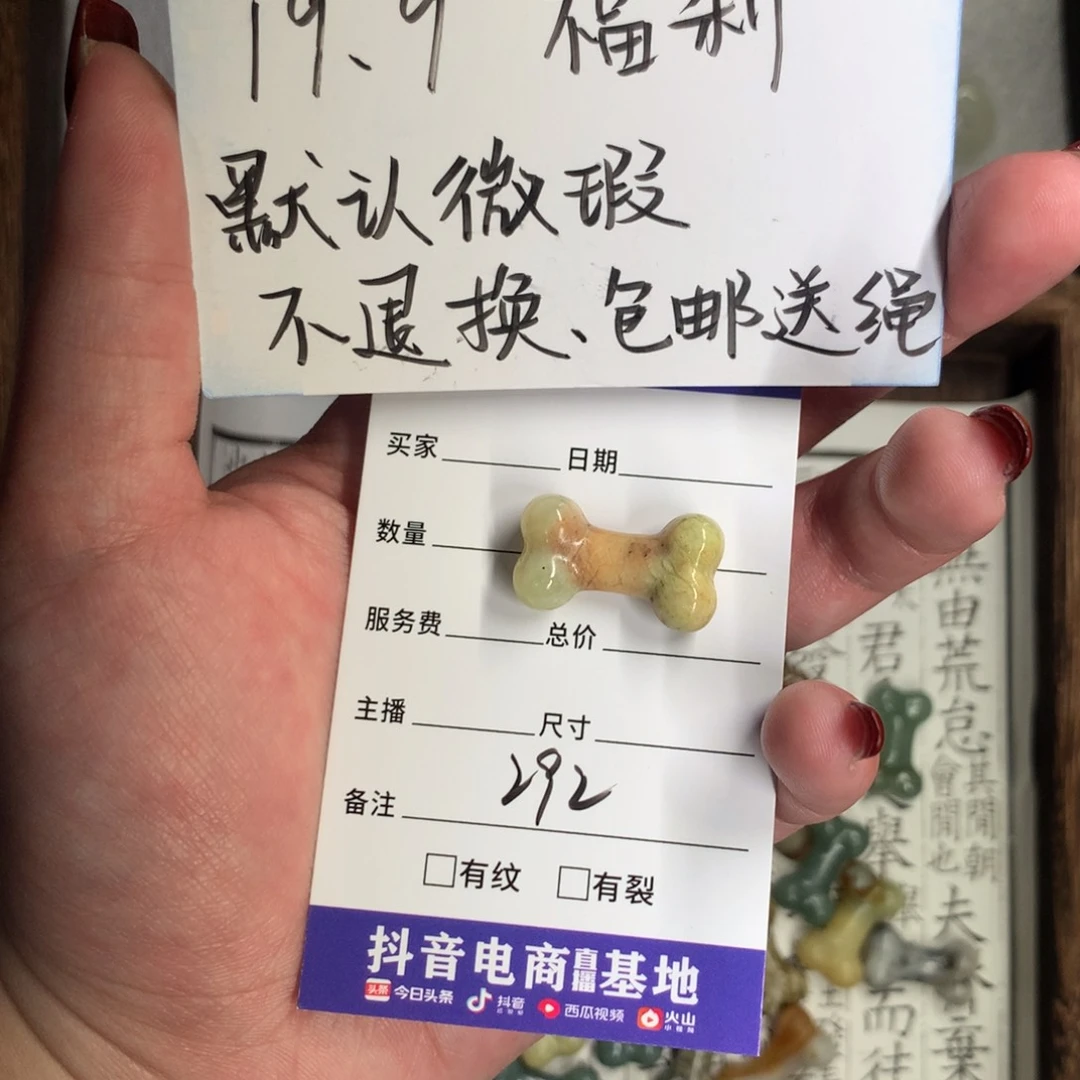 19.9 福利
默认微瑕
不退换、包邮送绳
买家 日期
数量
服务费 总价
主播 尺寸
292
备注
□有纹 □有裂
抖音电商直播基地
头条 今日头条 抖音 西瓜视频 火山
無由荒怠
君
其閒朝
會閒也
舉
夫
而
棄